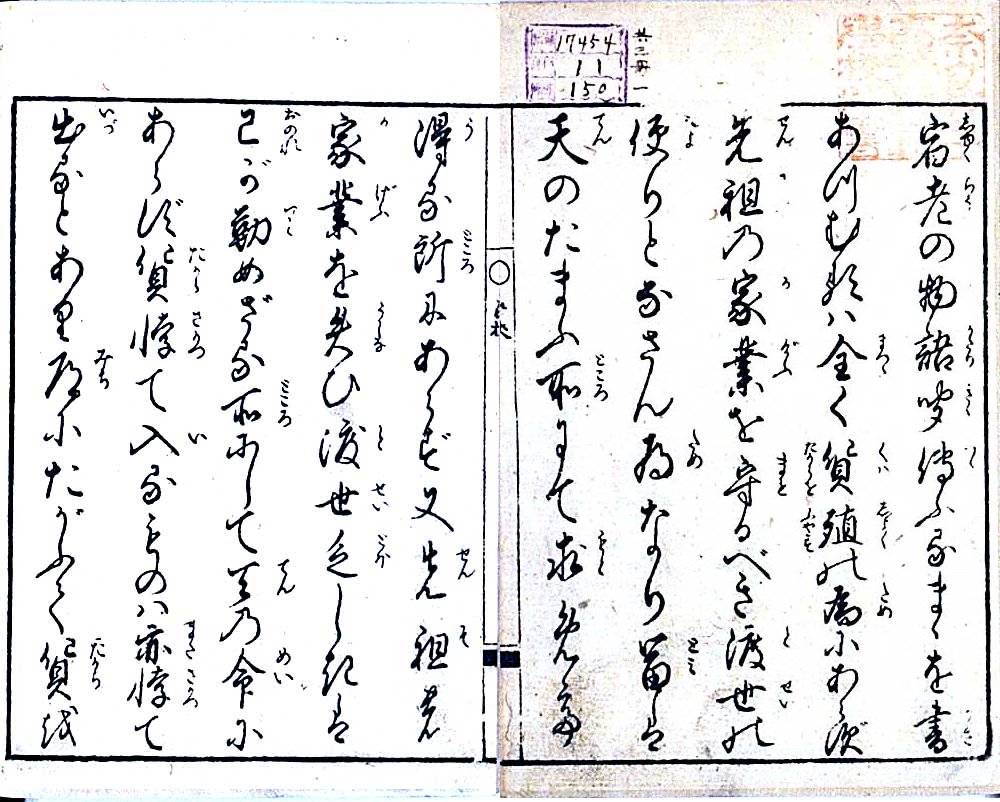 宿老の物語聞傳ふるまゝを書
あつむれバ全く貨殖の為にあらず
先祖の家業を守るべき渡世の
便りとなさん為なり冨は
天のたまふ所にて求め
得る所にあらず又先祖の
家業を失ひ渡世乏しきは
己が勤めざる所にして天の命に
あらず貨悖て入るものハ亦悖て
出るとあり道にたがふて貨を
17454
11
150
共三冊一